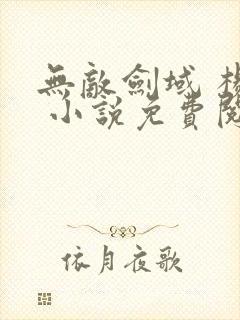 無敵劍域
小說免費
依月夜歌